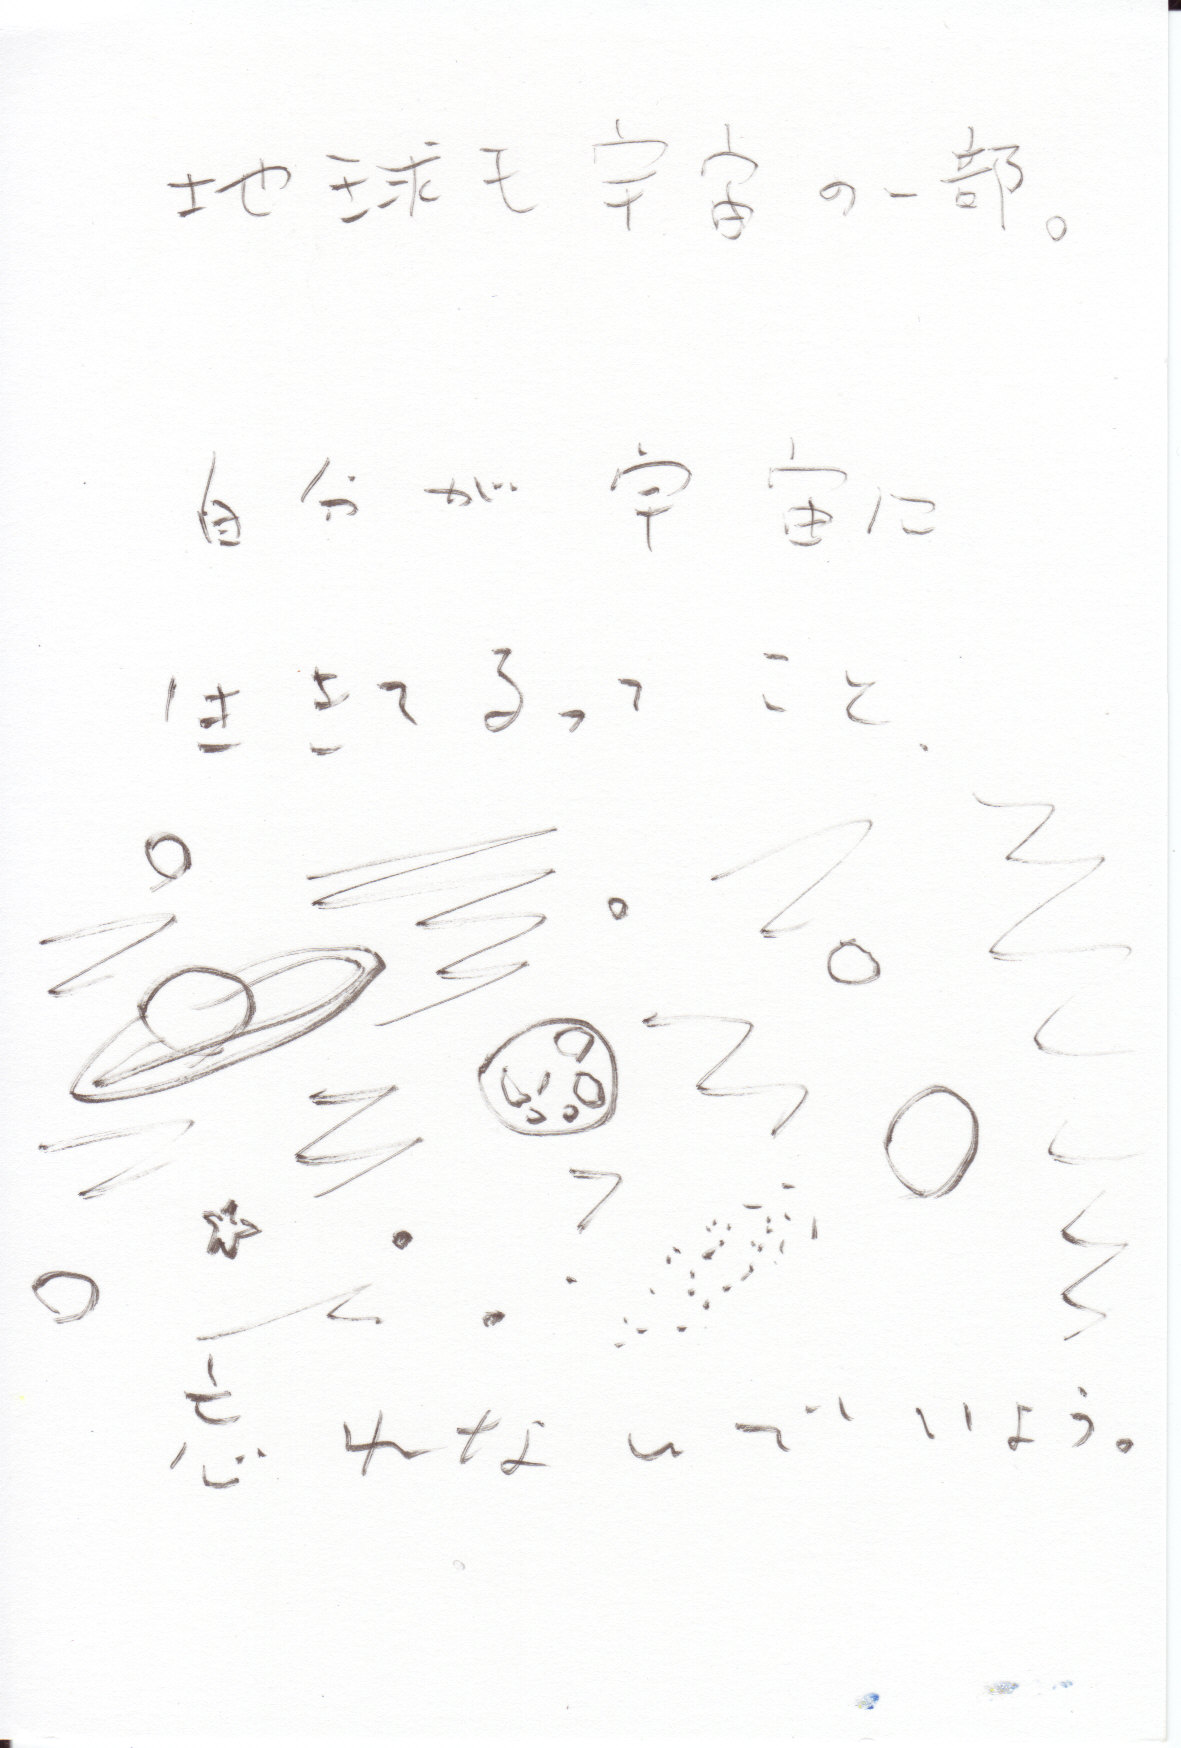 地球も宇宙の一部。
自分が宇宙に
生きてるってこと、
忘れないでいよう。